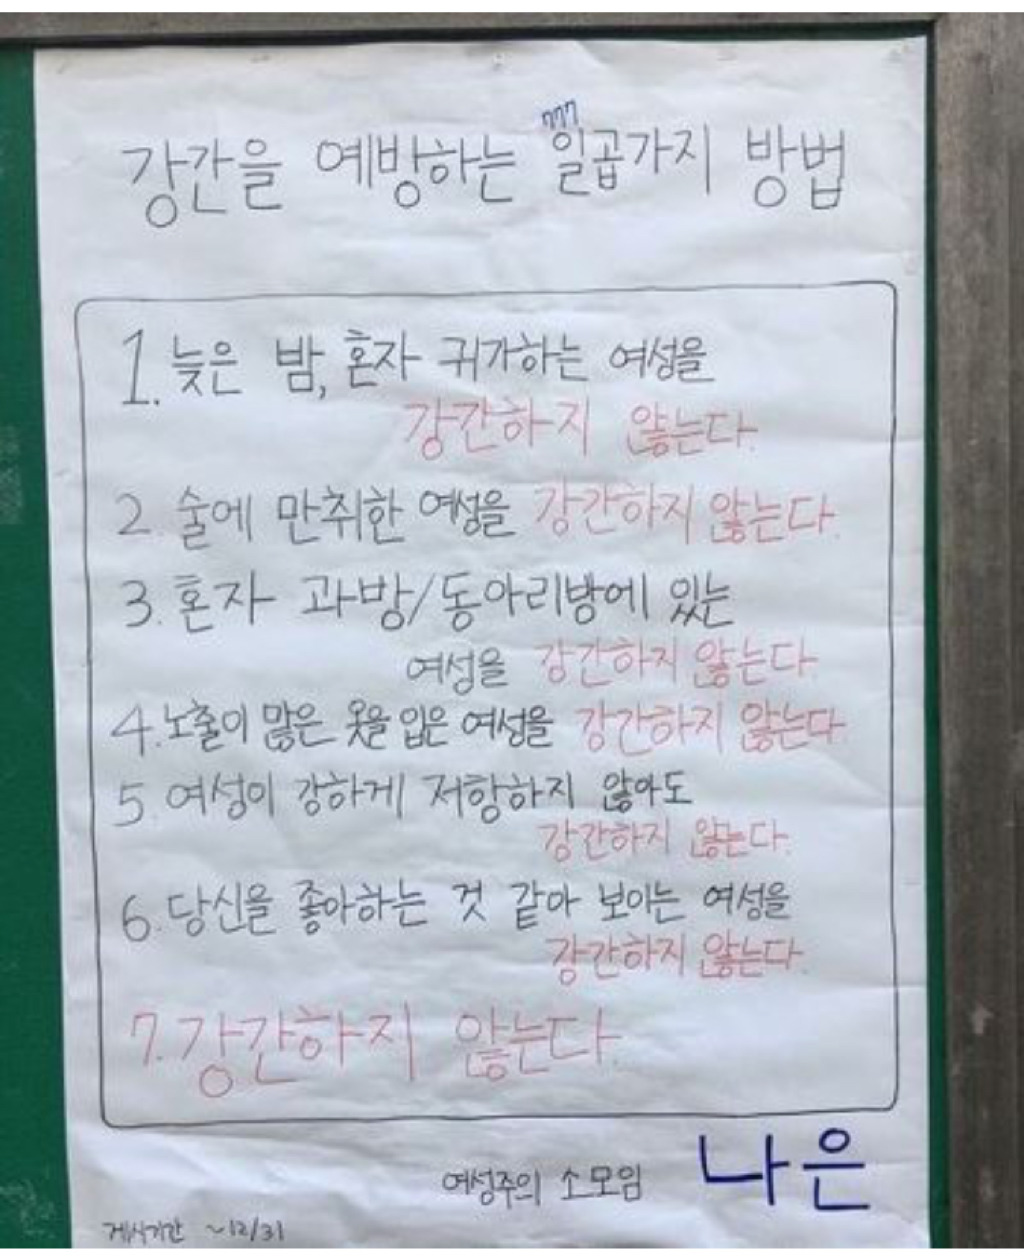 강간을 예방하는 일곱가지 방법
1. 늦은 밤, 혼자 귀가하는 여성을
강간하지 않는다.
2. 술에 만취한 여성을 강간하지 않는다.
3. 혼자 과방/동아리방에 있는
여성을 강간하지 않는다.
4. 노출이 많은 옷을 입은 여성을 강간하지 않는다
5. 여성이 강하게 저항하지 않아도
강간하지 않는다.
6. 당신을 좋아하는 것 같아 보이는 여성을
강간하지 않는다.
7. 강간하지 않는다.
여성주의 소모임 나은
게시기간 ~12/31